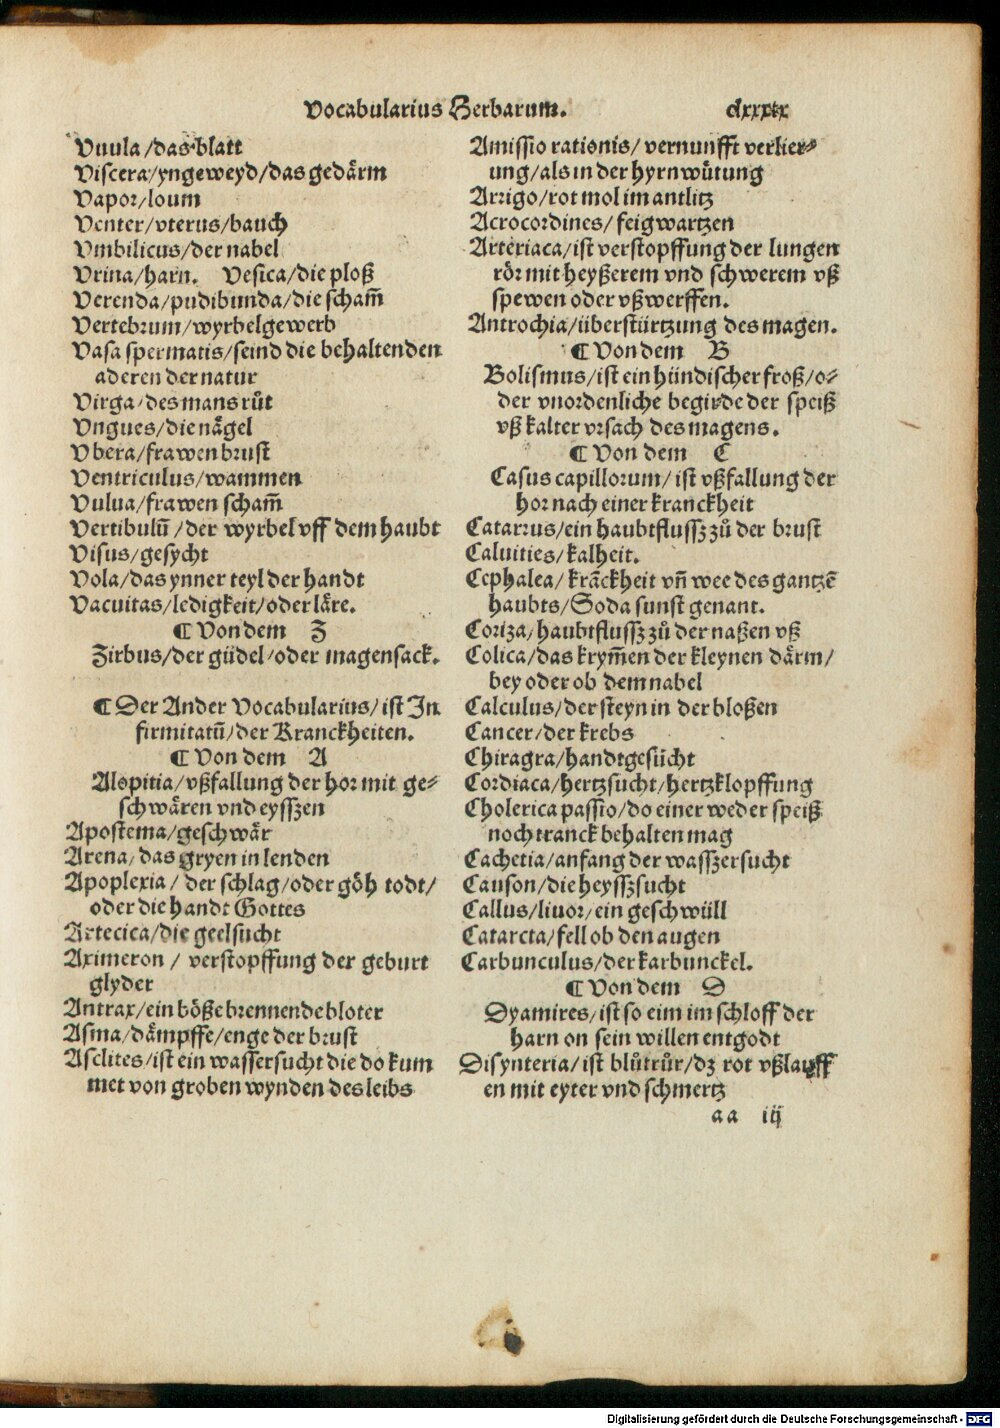 Vocabularius Herbarum. clxxxix
Vuula/das blatt
Viscera/yngeweyd/das gedärm
Vapor/loum
Venter/vterus/bauch
Vmbilicus/der nabel
Vrina/harn. Vesica/die ploß
Verenda/pudibunda/die scham̄
Vertebrum/wyrbelgewerb
Vasa spermatis/seind die behaltenden
aderen der natur
Virga/des mans růt
Vngues/die nägel
Vbera/frawen brust
Ventriculus/wammen
Vulua/frawen scham̄
Vertibulū/der wyrbel vff dem haubt
Visus/gesycht
Vola/das ynner teyl der handt
Vacuitas/ledigkeit/oder läre.
¶ Von dem Z
Zirbus/der güdel/oder magensack.
¶ Der Ander Vocabularius/ist In
firmitatū/der Kranckheiten.
¶ Von dem A
Alopitia/vßfallung der hor mit ge⸗
schwären vnd eyssʒen
Apostema/geschwär
Arena/das gryen in lenden
Apoplexia/der schlag/oder göh todt/
oder die handt Gottes
Artecica/die geelsucht
Aximeron/verstopffung der geburt
glyder
Antrax/ein böße brennende bloter
Asma/dämpffe/enge der brust
Asclites/ist ein wassersucht die do kum
met von groben wynden des leibs
Amissio rationis/vernunfft verlier⸗
ung/als in der hyrnwütung
Arrigo/rot mol im antlitz
Acrocordines/feigwartzen
Arteriaca/ist verstopffung der lungen
rör mit heyßerem vnd schwerem vß
spewen oder vßwerffen.
Antrochia/überstürtzung des magen.
¶ Von dem B
Bolismus/ist ein hündischer froß/o⸗
der vnordenliche begirde der speiß
vß kalter vrsach des magens.
¶ Von dem C
Casus capillorum/ist vßfallung der
hor nach einer kranckheit
Catarrus/ein haubtflussʒ zů der brust
Caluities/kalheit.
Cephalea/krāckheit vn̄ wee des gantzē
haubts/Soda sunst genant.
Coriza/haubtflussʒ zů der naßen vß
Colica/das krym̄en der kleynen därm/
bey oder ob dem nabel
Calculus/der steyn in der bloßen
Cancer/der krebs
Chiragra/handtgesücht
Cordiaca/hertzsucht/hertzklopffung
Cholerica passio/do einer weder speiß
noch tranck behalten mag
Cachetia/anfang der wassʒersucht
Causon/die heyssʒsucht
Callus/liuor/ein geschwüll
Catarcta/fell ob den augen
Carbunculus/der karbunckel.
¶ Von dem D
Dyamires/ist so eim im schloff der
harn on sein willen entgodt
Disynteria/ist blůtrůr/dʒ rot vßlauff
en mit eyter vnd schmertz
aa iij
Digitalisierung gefördert durch die Deutsche Forschungsgemeinschaft - DFG